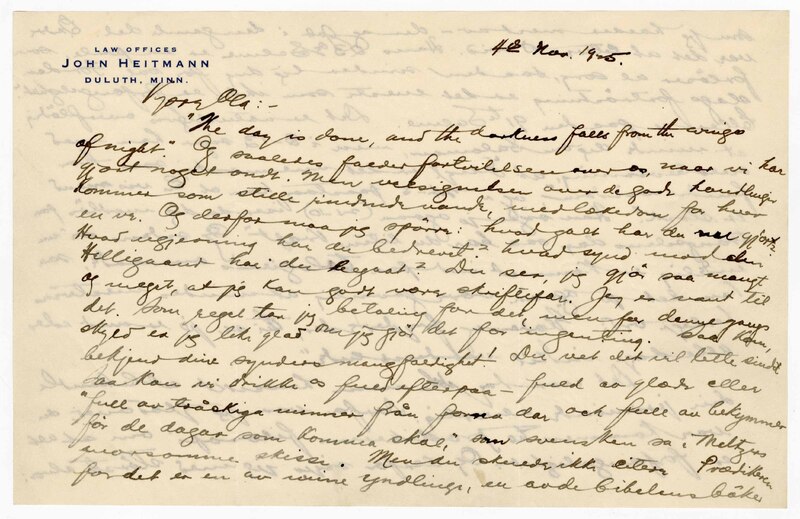 LAW OFFICES
JOHN HEITMANN
DULUTH, MINN.
4de Nov. 1925.
Kjære Ola:-
"The day is done, and the darkness falls from the wings
of night." Og saaledes falder fortvilelsen over os, naar vi har
gjort noget ondt. Men velsignelsen over de gode handlinger
kommer som stille rindende vande, med lægedom for hver
en ve. Og derfor maa jeg spørre: hvad galt har du nu gjort?
Hvad ugjerning har du bedrevet? hvad synd mod den
Helligaand har du begaat? Du ser, jeg gjør saa mangt
og meget, at jeg kan godt være skriftefar. Jeg er vant til
det. Som regel tar jeg betaling for det men for denne gangs
skyld er jeg like glad om jeg gjør det for ingenting. Saa kom,
bekjend dine synders mangfoldighet! Du vet det vil lette sindet
Saa kan vi drikke os fulde efterpaa - fuld av glæde eller
"full av tråkiga minner från forna dar och full av bekymmer
för de dagar som komma skal," som svensken sa i Meltzers
morsomme skisse. Men du skulde ikke citere Prædikeren
for det er en av mine yndlings, en av de bibelens bøker